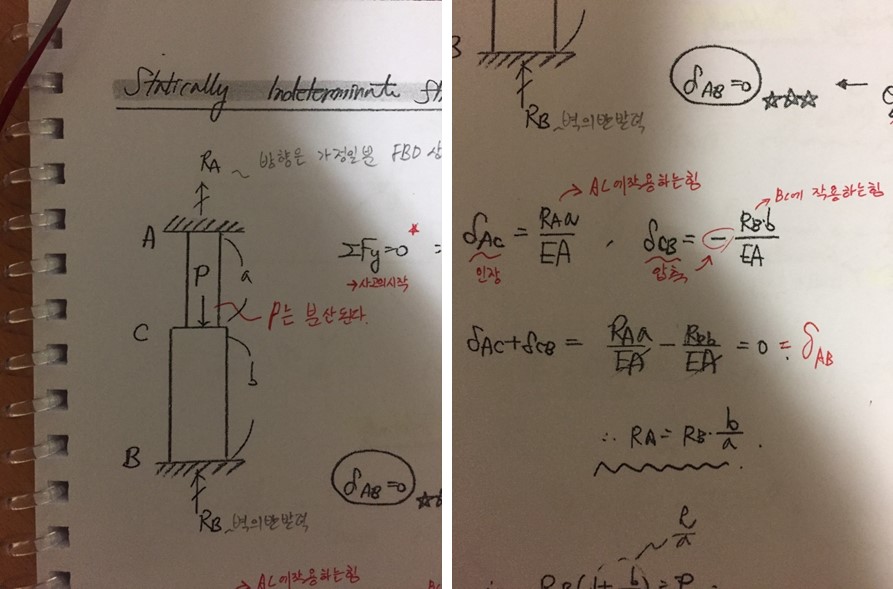 Statically Indeterminate St
RA ~ 방향은 가정일뿐 FBD 상
A
ΣFy=0 =
→사고의시작
P
a
P는 분산된다.
C
b
B
δAB=0
RB ~벽의반발력
→ AC에작용하는힘
B
δAB=0 ☆☆☆ ←
RB ~벽의반발력
→ AC에작용하는힘
→ BC에 작용하는힘
δAC = RAa/EA , δCB = - RB·b/EA
인장
압축
δAC+δCB = RAa/EA - RBb/EA = 0 = δAB
∴ RA = RB· b/a .
RB(1+ b/) = P